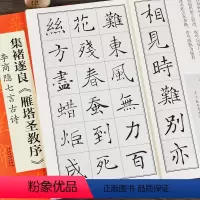 相見時難别亦
難東風無力百
花殘春蚕到死
絲方盡蜡炬成
集褚遂良《雁塔圣教序》
李商隐七言古诗
粉象优品